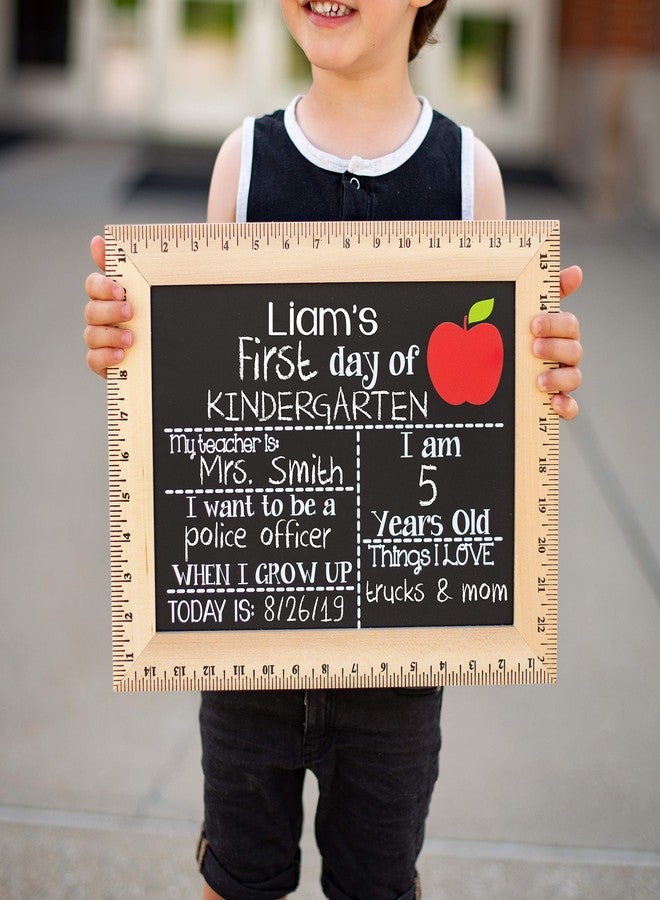 Liam's
First day of
KINDERGARTEN
My teacher is:
Mrs. Smith
I want to be a
police officer
WHEN I GROW UP
TODAY IS: 8/26/19
I am
5
Years Old
Things I LOVE
trucks & mom
1 2 3 4 5 6 7 8 9 10 11 12 13 14
13 14 17 18 19 20 21 22
11 8 7 6 5 4 3 2 1
14 13 12 11 10 9 8 7 6 5 4 3 2 1